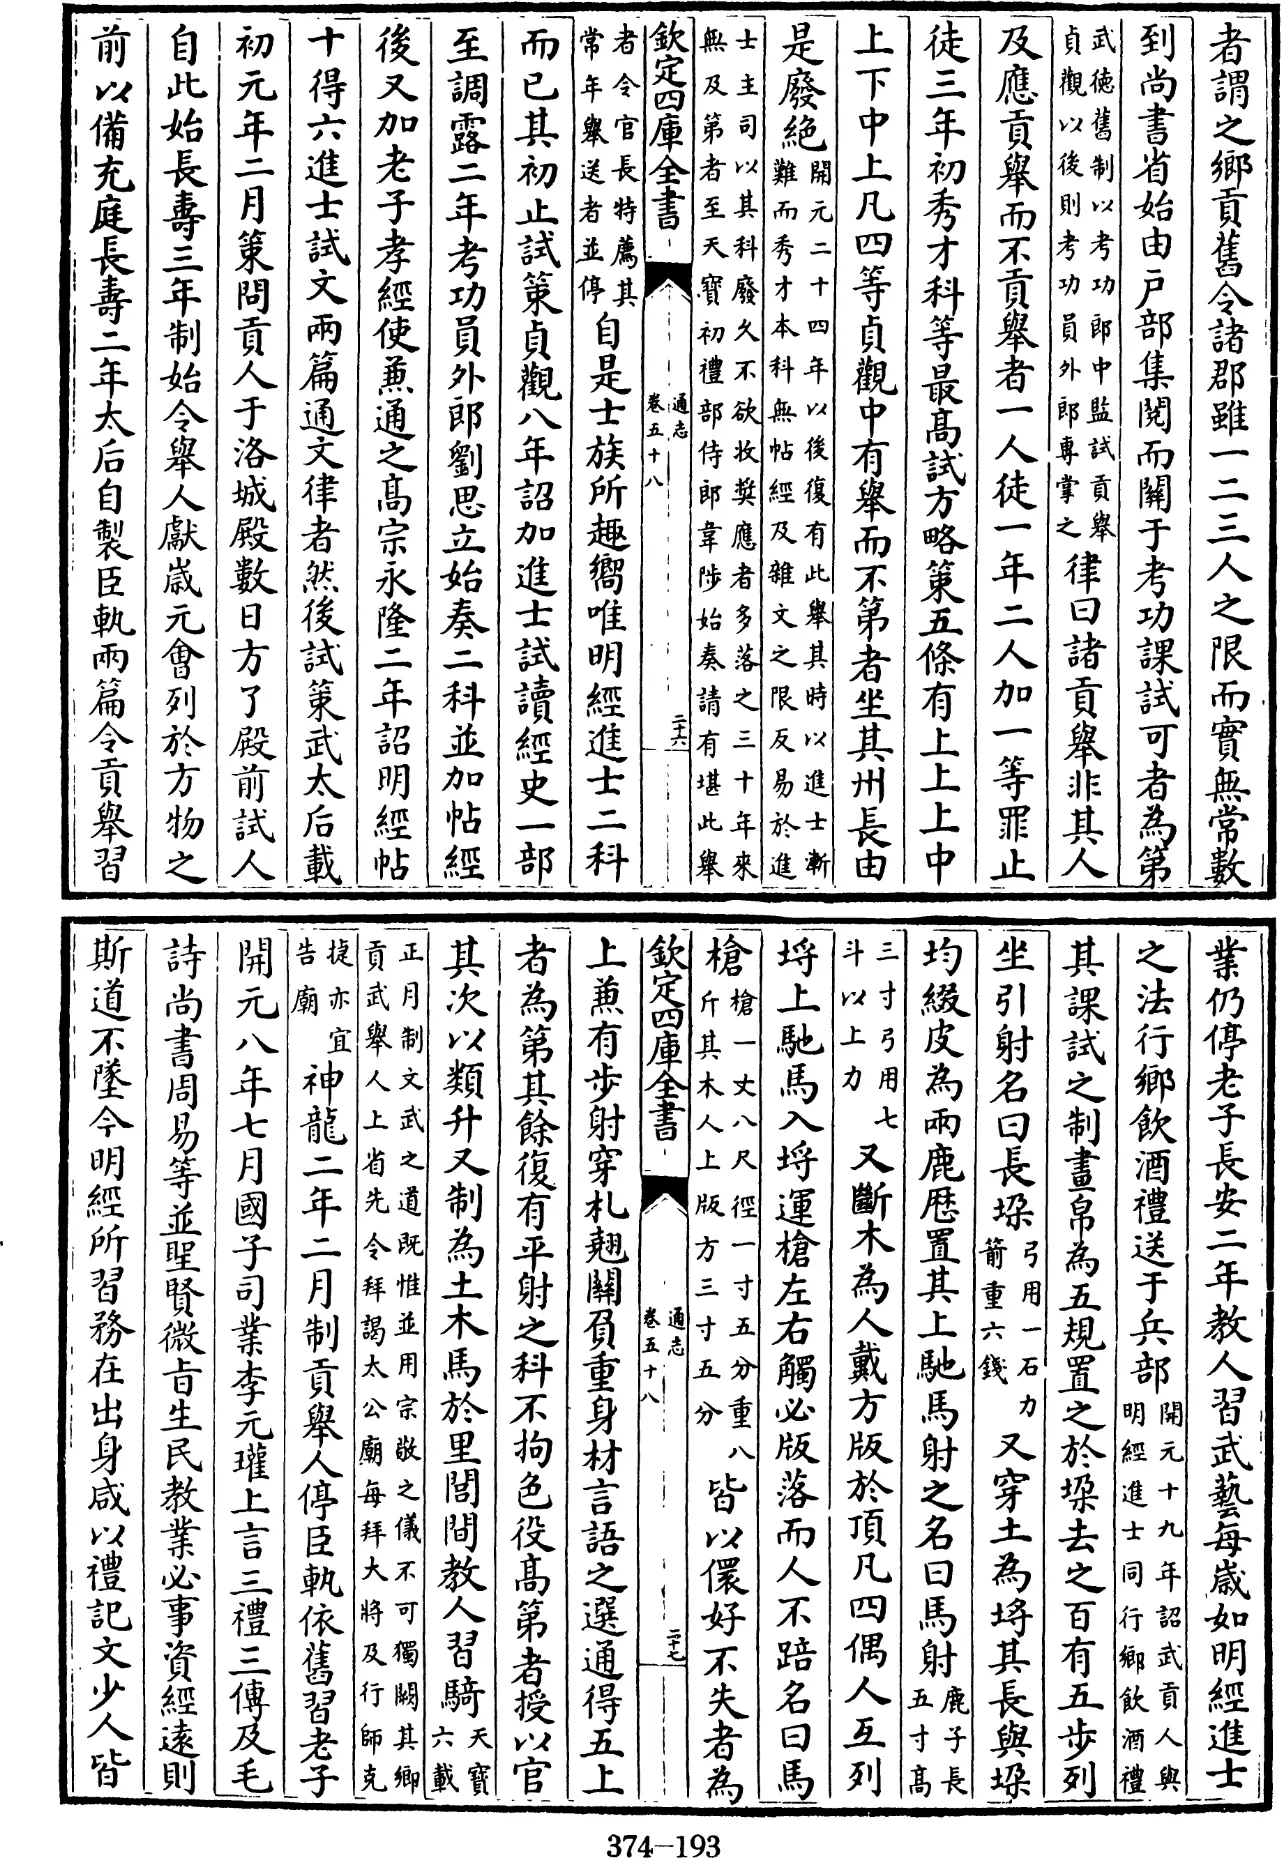 者謂之鄉貢舊令諸郡雖一二三人之限而實無常數
到尚書省始由戸部集閱而關于考功課試可者為第
武徳舊制以考功郎中監試貢舉
貞觀以後則考功員外郎專掌之
律曰諸貢舉非其人
及應貢舉而不貢舉者一人徒一年二人加一等罪止
徒三年初秀才科等最髙試方略䇿五條有上上上中
上下中上凡四等貞觀中有舉而不第者坐其州長由
是廢絶
開元二十四年以後復有此舉其時以進士漸
難而秀才本科無帖經及雜文之限反易於進
士主司以其科廢久不欲收奬應者多落之三十年來
無及第者至天寳初禮部侍郎韋陟始奏請有堪此舉
欽定四庫全書
通志
卷五十八
二十六
者令官長特薦其
常年舉送者並停
自是士族所趣嚮唯明經進士二科
而已其初止試䇿貞觀八年詔加進士試讀經史一部
至調露二年考功員外郎劉思立始奏二科並加帖經
後又加老子孝經使兼通之髙宗永隆二年詔明經帖
十得六進士試文兩篇通文律者然後試䇿武太后載
初元年二月䇿問貢人于洛城殿數日方了殿前試人
自此始長夀三年制始令舉人獻嵗元會列於方物之
前以備充庭長夀二年太后自製臣軌兩篇令貢舉習
業仍停老子長安二年教人習武藝每嵗如明經進士
之法行鄉飲酒禮送于兵部
開元十九年詔武貢人與
明經進士同行鄉飲酒禮
其課試之制畫帛為五規置之於垜去之百有五步列
坐引射名曰長垜
弓用一石力
箭重六錢
又穿土為埓其長與垜
均綴皮為兩鹿厯置其上馳馬射之名曰馬射
鹿子長
五寸髙
三寸弓用七
斗以上力
又斷木為人戴方版於頂凡四偶人互列
埓上馳馬入埓運槍左右觸必版落而人不踣名曰馬
槍
槍一丈八尺徑一寸五分重八
斤其木人上版方三寸五分
皆以儇好不失者為
欽定四庫全書
通志
卷五十八
二十七
上兼有步射穿札翹關負重身材言語之選通得五上
者為第其餘復有平射之科不拘色役髙第者授以官
其次以類升又制為土木馬於里閭間教人習騎
天寳
六載
正月制文武之道既惟並用宗敬之儀不可獨闕其鄉
貢武舉人上省先令拜謁太公廟每拜大將及行師克
捷亦宜
告廟
神龍二年二月制貢舉人停臣軌依舊習老子
開元八年七月國子司業李元瓘上言三禮三傳及毛
詩尚書周易等並聖賢微旨生民教業必事資經逺則
斯道不墜今明經所習務在出身咸以禮記文少人皆
374-193